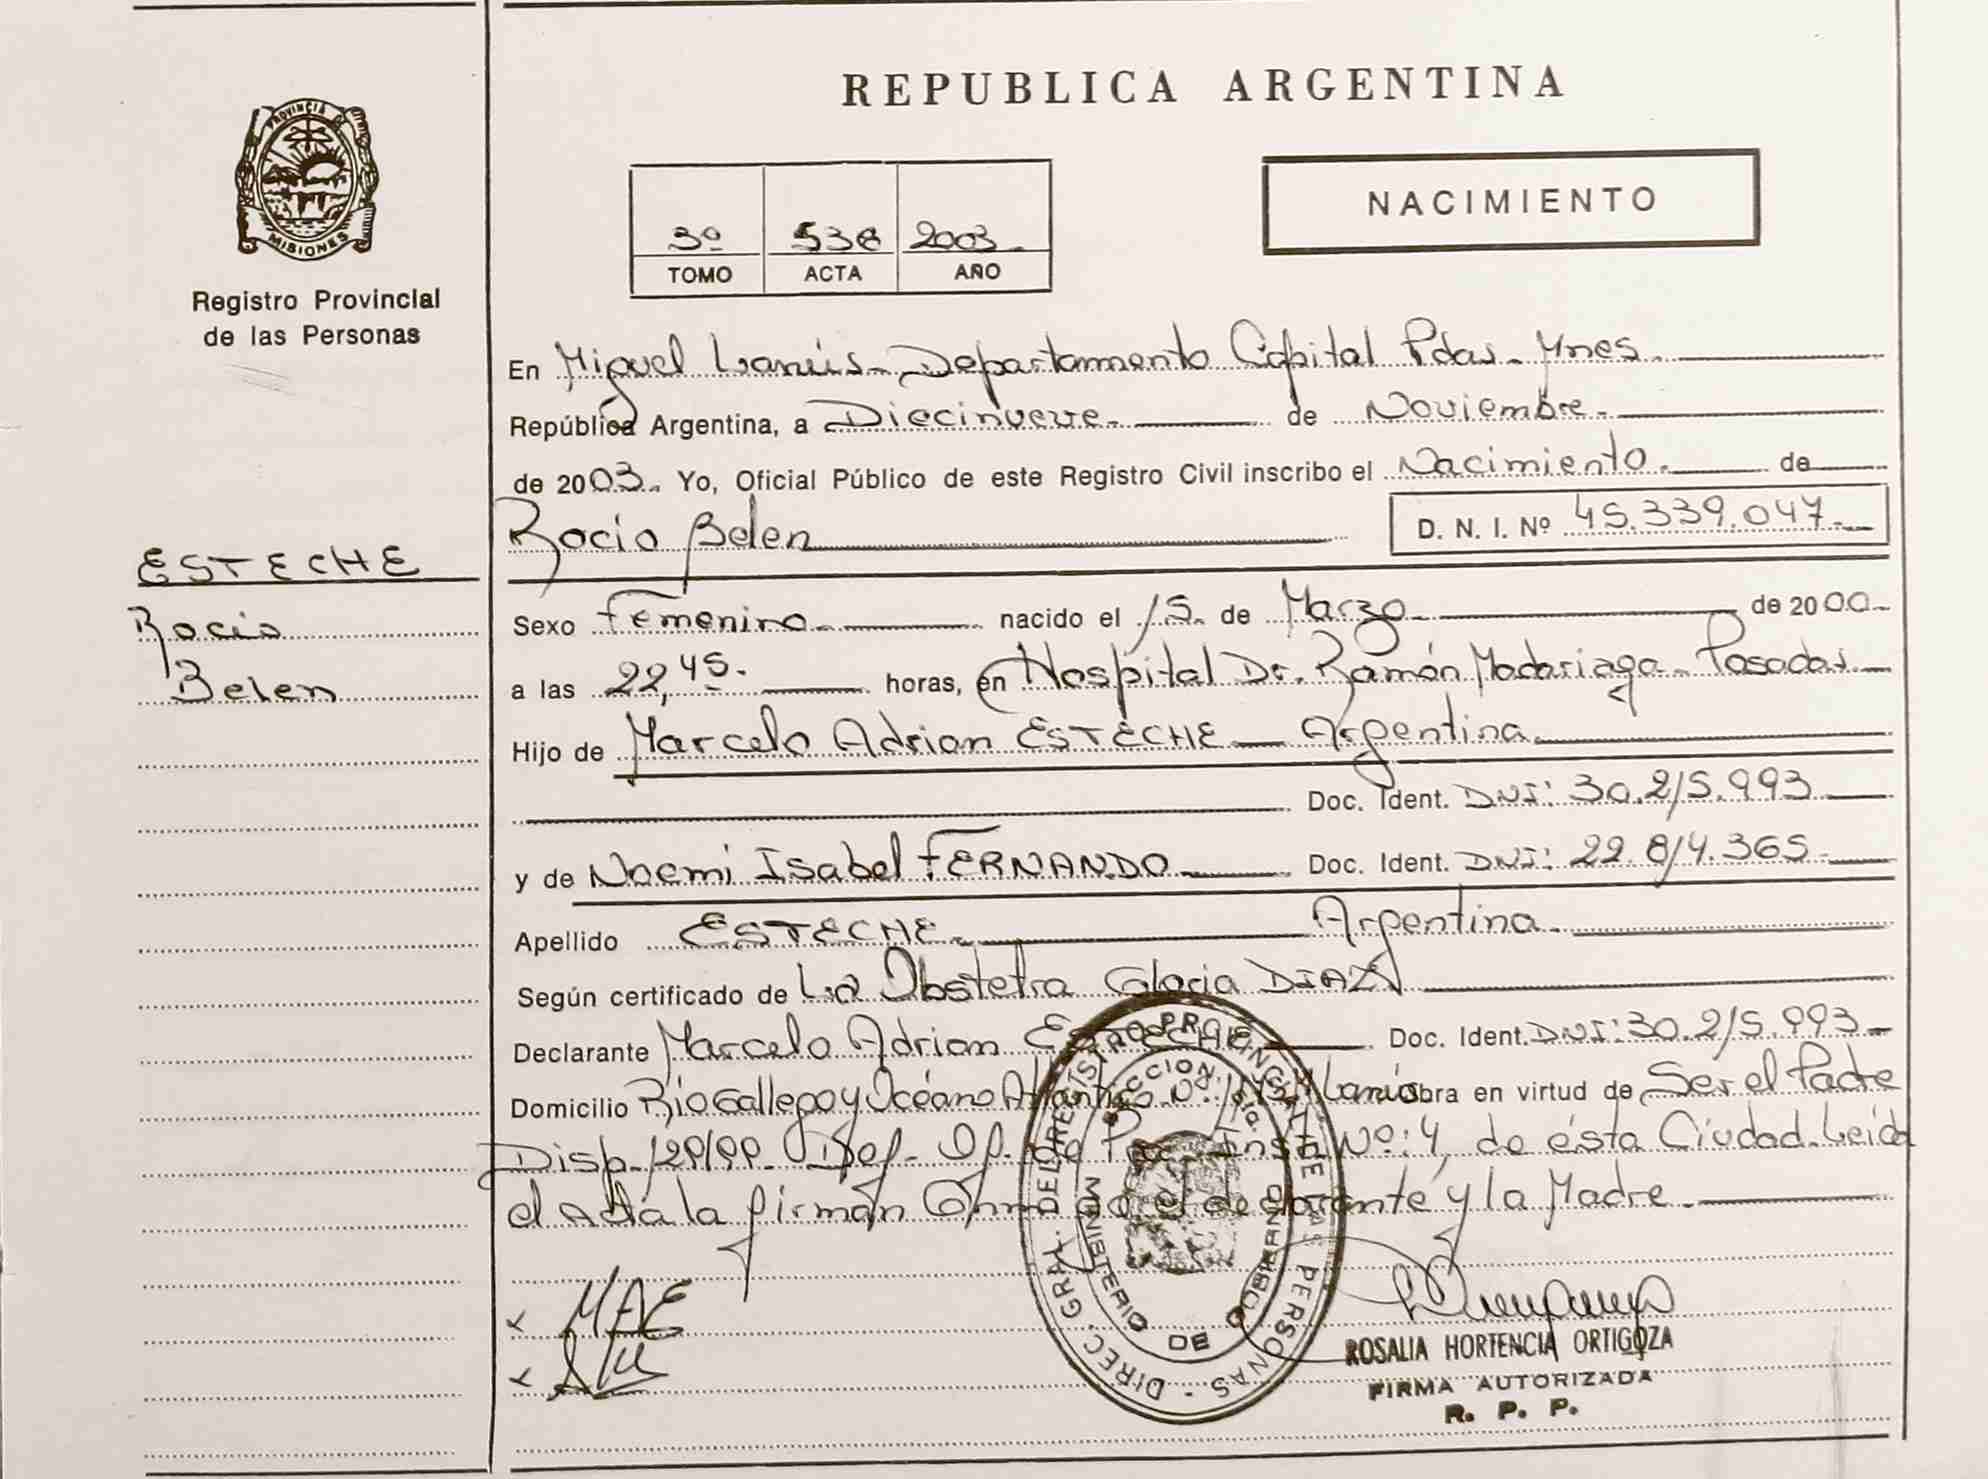 REPUBLICA ARGENTINA
PROVINCIA DE
MISIONES
Registro Provincial
de las Personas
3º 538 2003.
TOMO ACTA AÑO
NACIMIENTO
En Miguel Lanús. Departamento Capital Pdas. Mnes.
República Argentina, a Diecinueve. de Noviembre.
de 2003. Yo, Oficial Público de este Registro Civil inscribo el Nacimiento. de
Rocio Belen D. N. I. Nº 45.339.047.
ESTECHE
Rocio
Belen
Sexo Femenino. nacido el 15. de Marzo de 2000.
a las 22,45. horas, en Hospital Dr. Ramón Madariaga. Posadas.
Hijo de Marcelo Adrian ESTECHE Argentina.
Doc. Ident. DNI: 30.215.993
y de Noemi Isabel FERNANDO Doc. Ident. DNI: 22.814.365.
Apellido ESTECHE. Argentina.
Según certificado de La Obstetra Gloria DIAZ
Declarante Marcelo Adrian ESTECHE Doc. Ident. DNI: 30.215.993.
Domicilio Rio Gallego y Océano Atlántico Lanús obra en virtud de Ser el Padre
Disp. Def. de Inst. Nº: 4, de ésta Ciudad. Leida
el Acta la firmán el declarante y la Madre.
MAE
DIREC. GRAL. DEL REGISTRO PROVINCIAL DE LAS PERSONAS
MINISTERIO DE GOBIERNO
ROSALIA HORTENCIA ORTIGOZA
FIRMA AUTORIZADA
R. P. P.